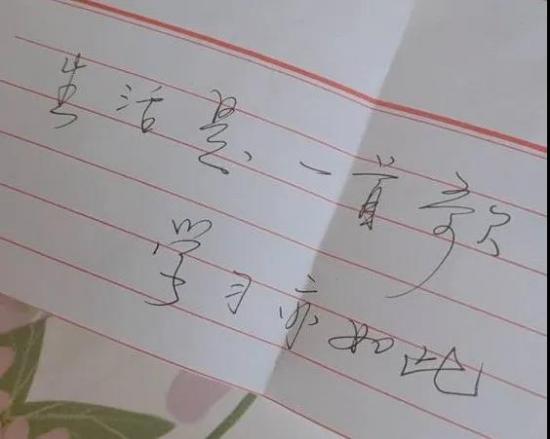 生活是一首歌
学习亦如此